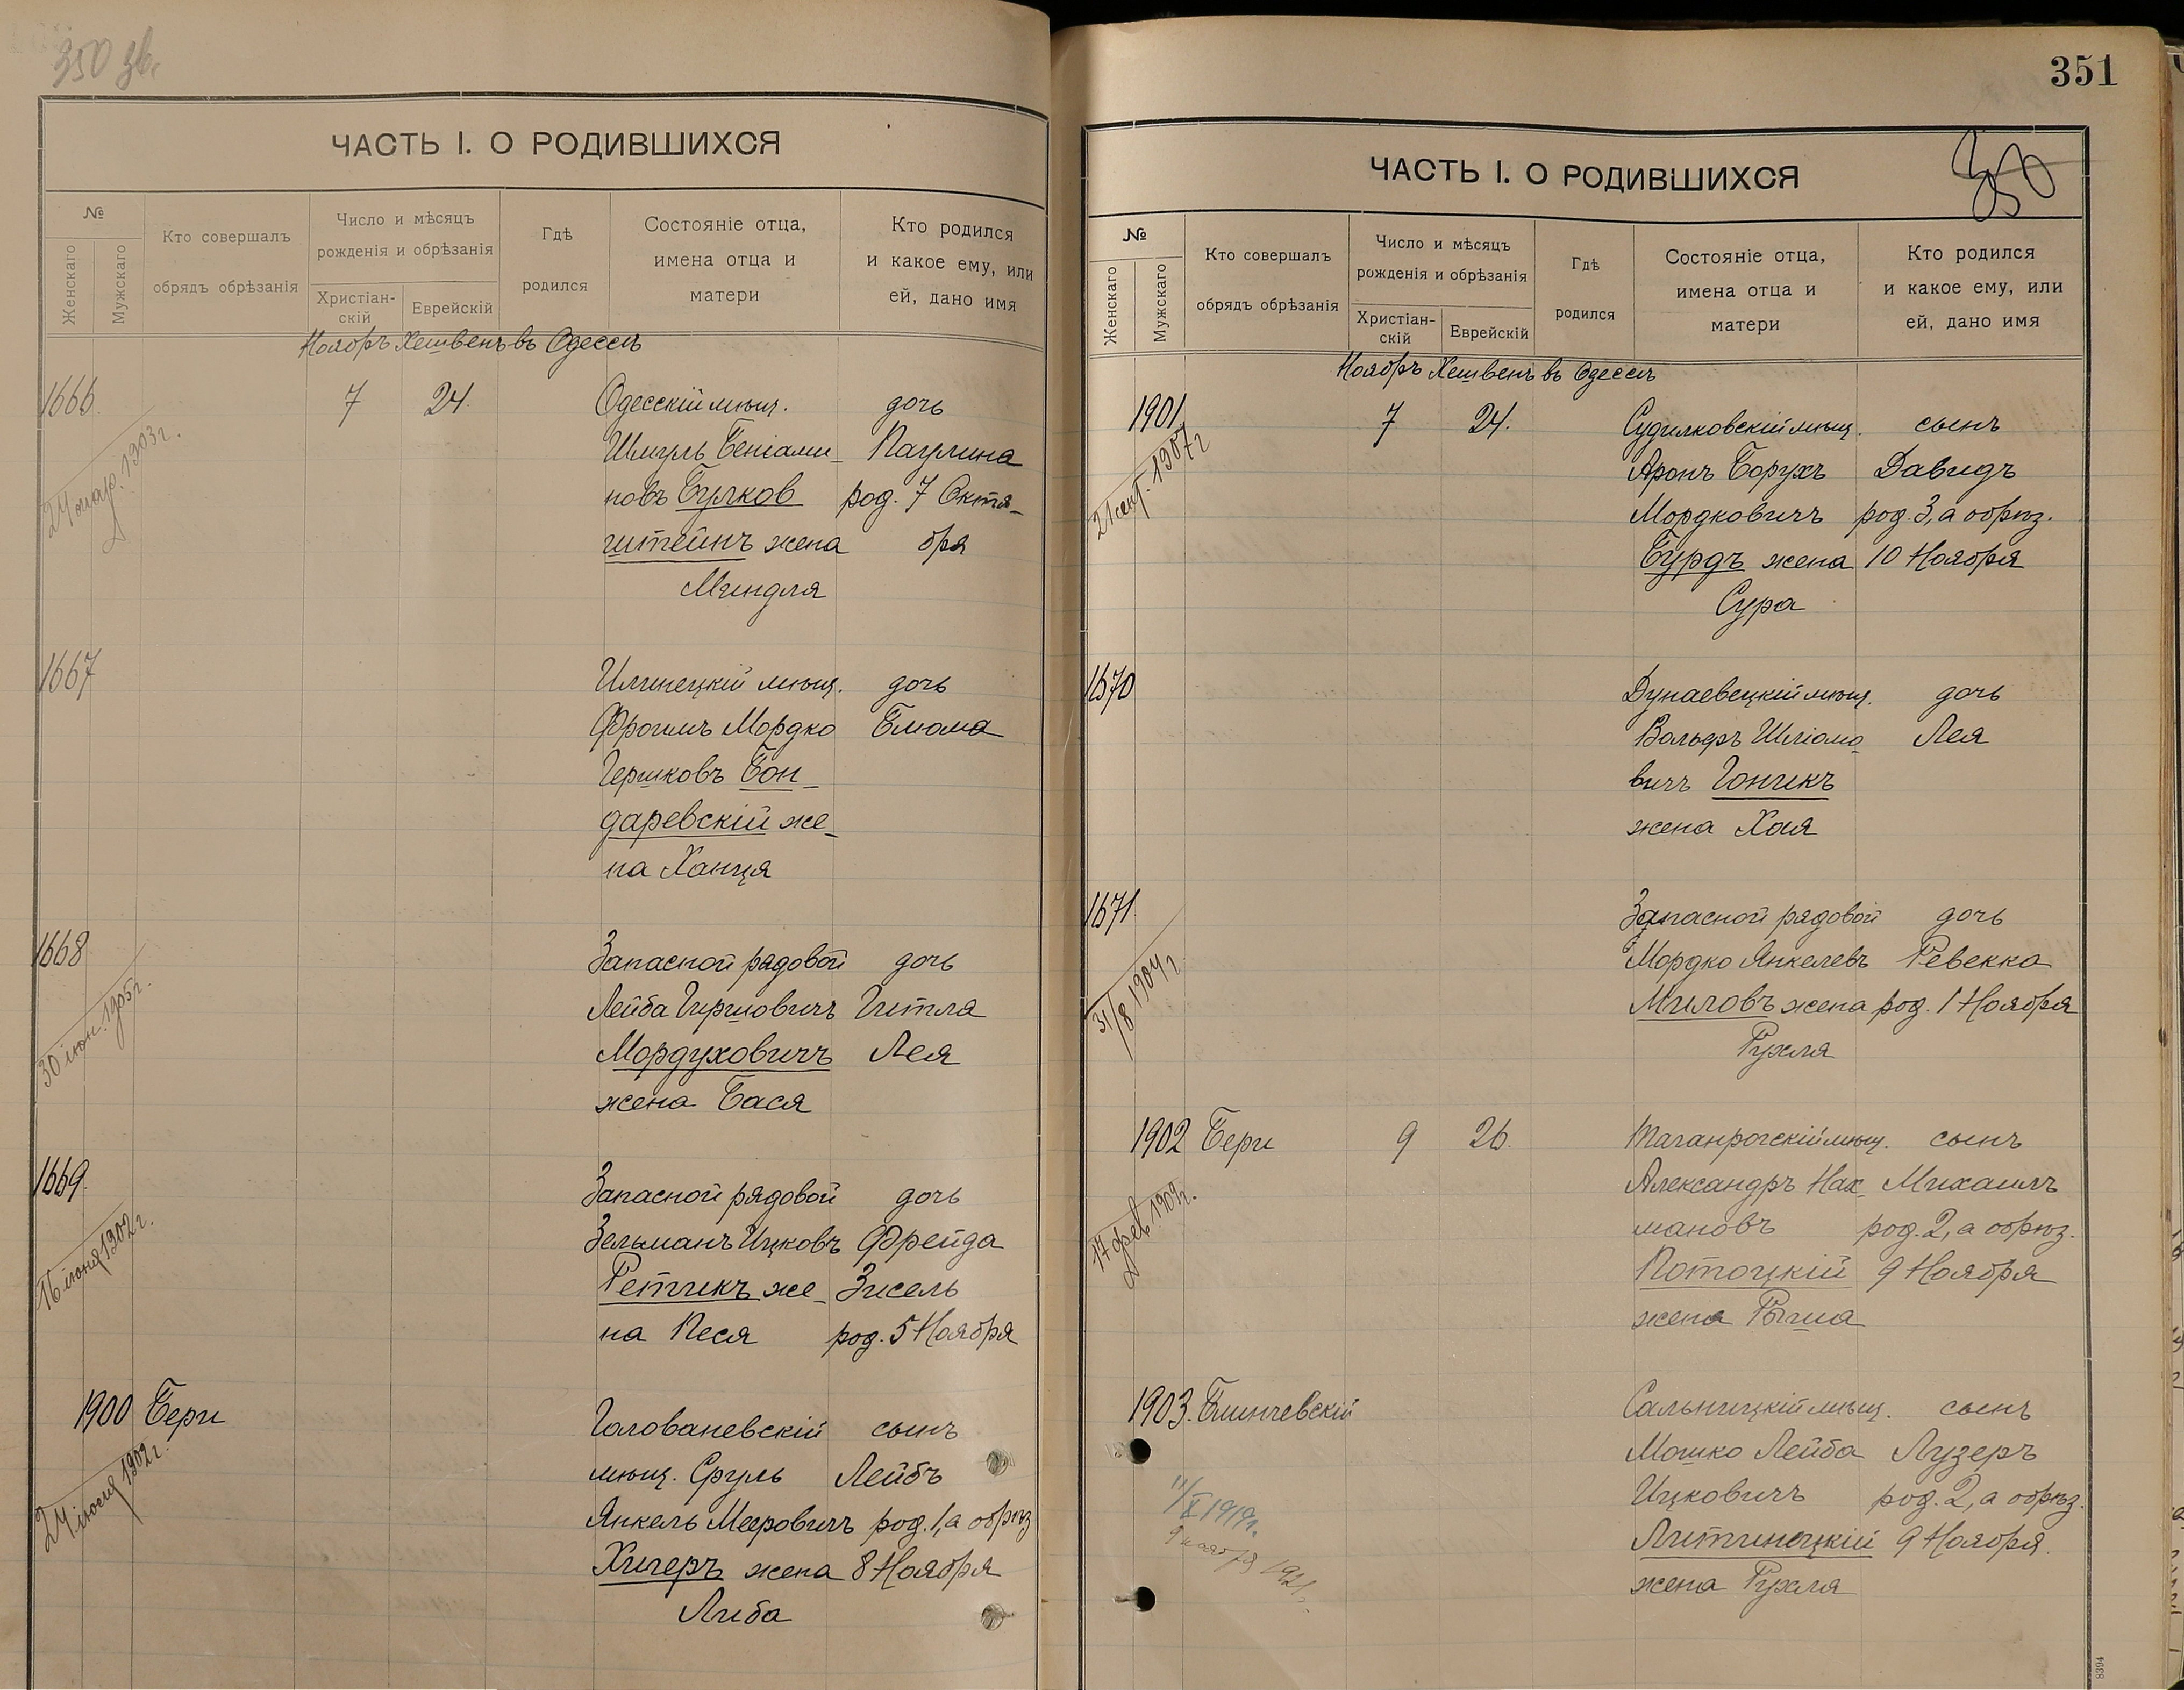 350 зв.
ЧАСТЬ I. О РОДИВШИХСЯ
№
Женскаго
Мужскаго
Кто совершалъ
обрядъ обрѣзанія
Число и мѣсяцъ
рожденія и обрѣзанія
Христіан-
скій
Еврейскій
Гдѣ
родился
Состояніе отца,
имена отца и
матери
Кто родился
и какое ему, или
ей, дано имя
Ноябрь Хешвенъ въ Одессѣ
1666. 7 24. Одесскій мѣщ. дочь
24 мар. 1903 г.
Шмуль Беніами- Паулина
новъ Булков род. 7 Октя-
штейнъ жена бря
Миндля
1667 Илинецкій мѣщ. дочь
Фроимъ Мордко Блюма
Гершковъ Бон-
даревскій же-
на Ханця
1668 Запасной рядовой дочь
30 іюн. 1905 г.
Лейба Гиршовичъ Гитля
Мордуховичъ Лея
жена Бася
1669. Запасной рядовой дочь
16 іюня 1902 г.
Зельманъ Ицковъ Фрейда
Ретикъ же- Зисель
на Песя род. 5 Ноября
1900 Бери Голованевскій сынъ
24 1902 г.
мѣщ. Сруль Лейбъ
Янкель Мееровичъ род. 1, а обрѣз
Хигеръ жена 8 Ноября
Либа
351
350
ЧАСТЬ I. О РОДИВШИХСЯ
№
Женскаго
Мужскаго
Кто совершалъ
обрядъ обрѣзанія
Число и мѣсяцъ
рожденія и обрѣзанія
Христіан-
скій
Еврейскій
Гдѣ
родился
Состояніе отца,
имена отца и
матери
Кто родился
и какое ему, или
ей, дано имя
Ноябрь Хешвенъ въ Одессѣ
1901. 7 24. Судилковскій мѣщ. сынъ
21 сент. 1907 г
Аронъ Борухъ Давидъ
Мордковичъ род. 3, а обрѣз.
Бурдъ жена 10 Ноября
Сура
1670 Дунаевецкій мѣщ. дочь
Вольфъ Шліомо- Лея
вичъ Гоникъ
жена Хая
1671. Запасной рядовой дочь
31/8 1904 г
Мордко Янкелевъ Ревекка
Миловъ жена род. 1 Ноября
Рухля
1902 Бери 9 26. Таганрогскій мѣщ. сынъ
17 фев. 1909 г.
Александръ Нах- Михаилъ
мановъ род. 2, а обрѣз.
Потоцкій 9 Ноября
жена
1903. Блинчевскій Сальницкій мѣщ. сынъ
Мошко Лейба Лузеръ
Ицковичъ род. 2, а обрѣз.
11/X 1919 г.
Литинецкій 9 Ноября.
9 ноября 1921 г.
жена Рухля
8394